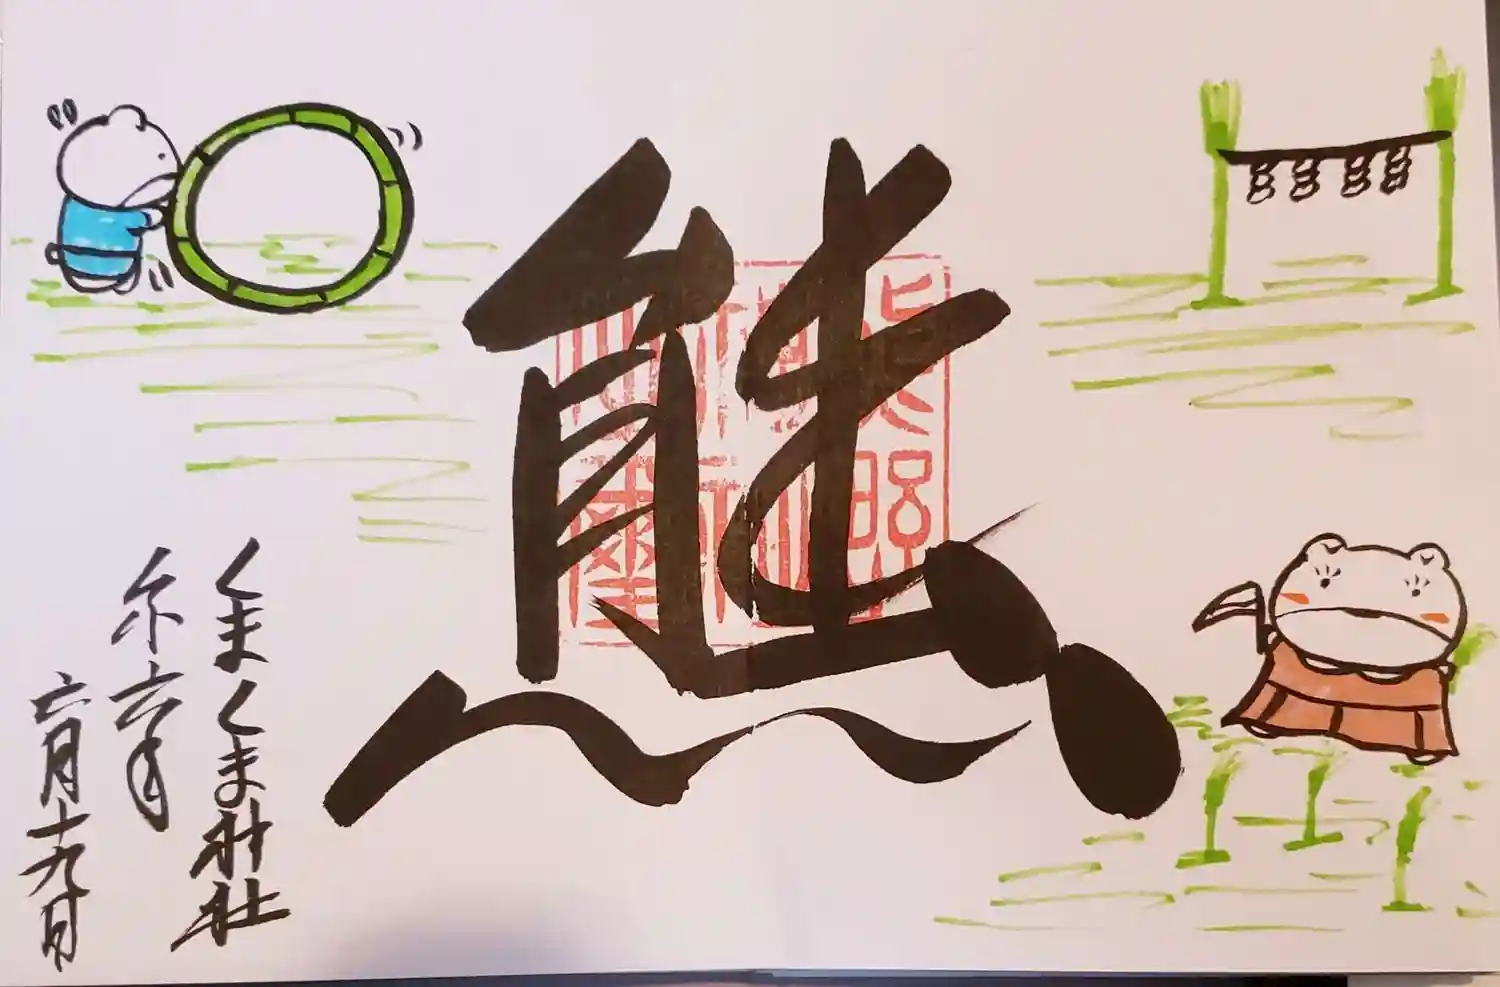 熊
くまくま神社
令六年
六月十九日